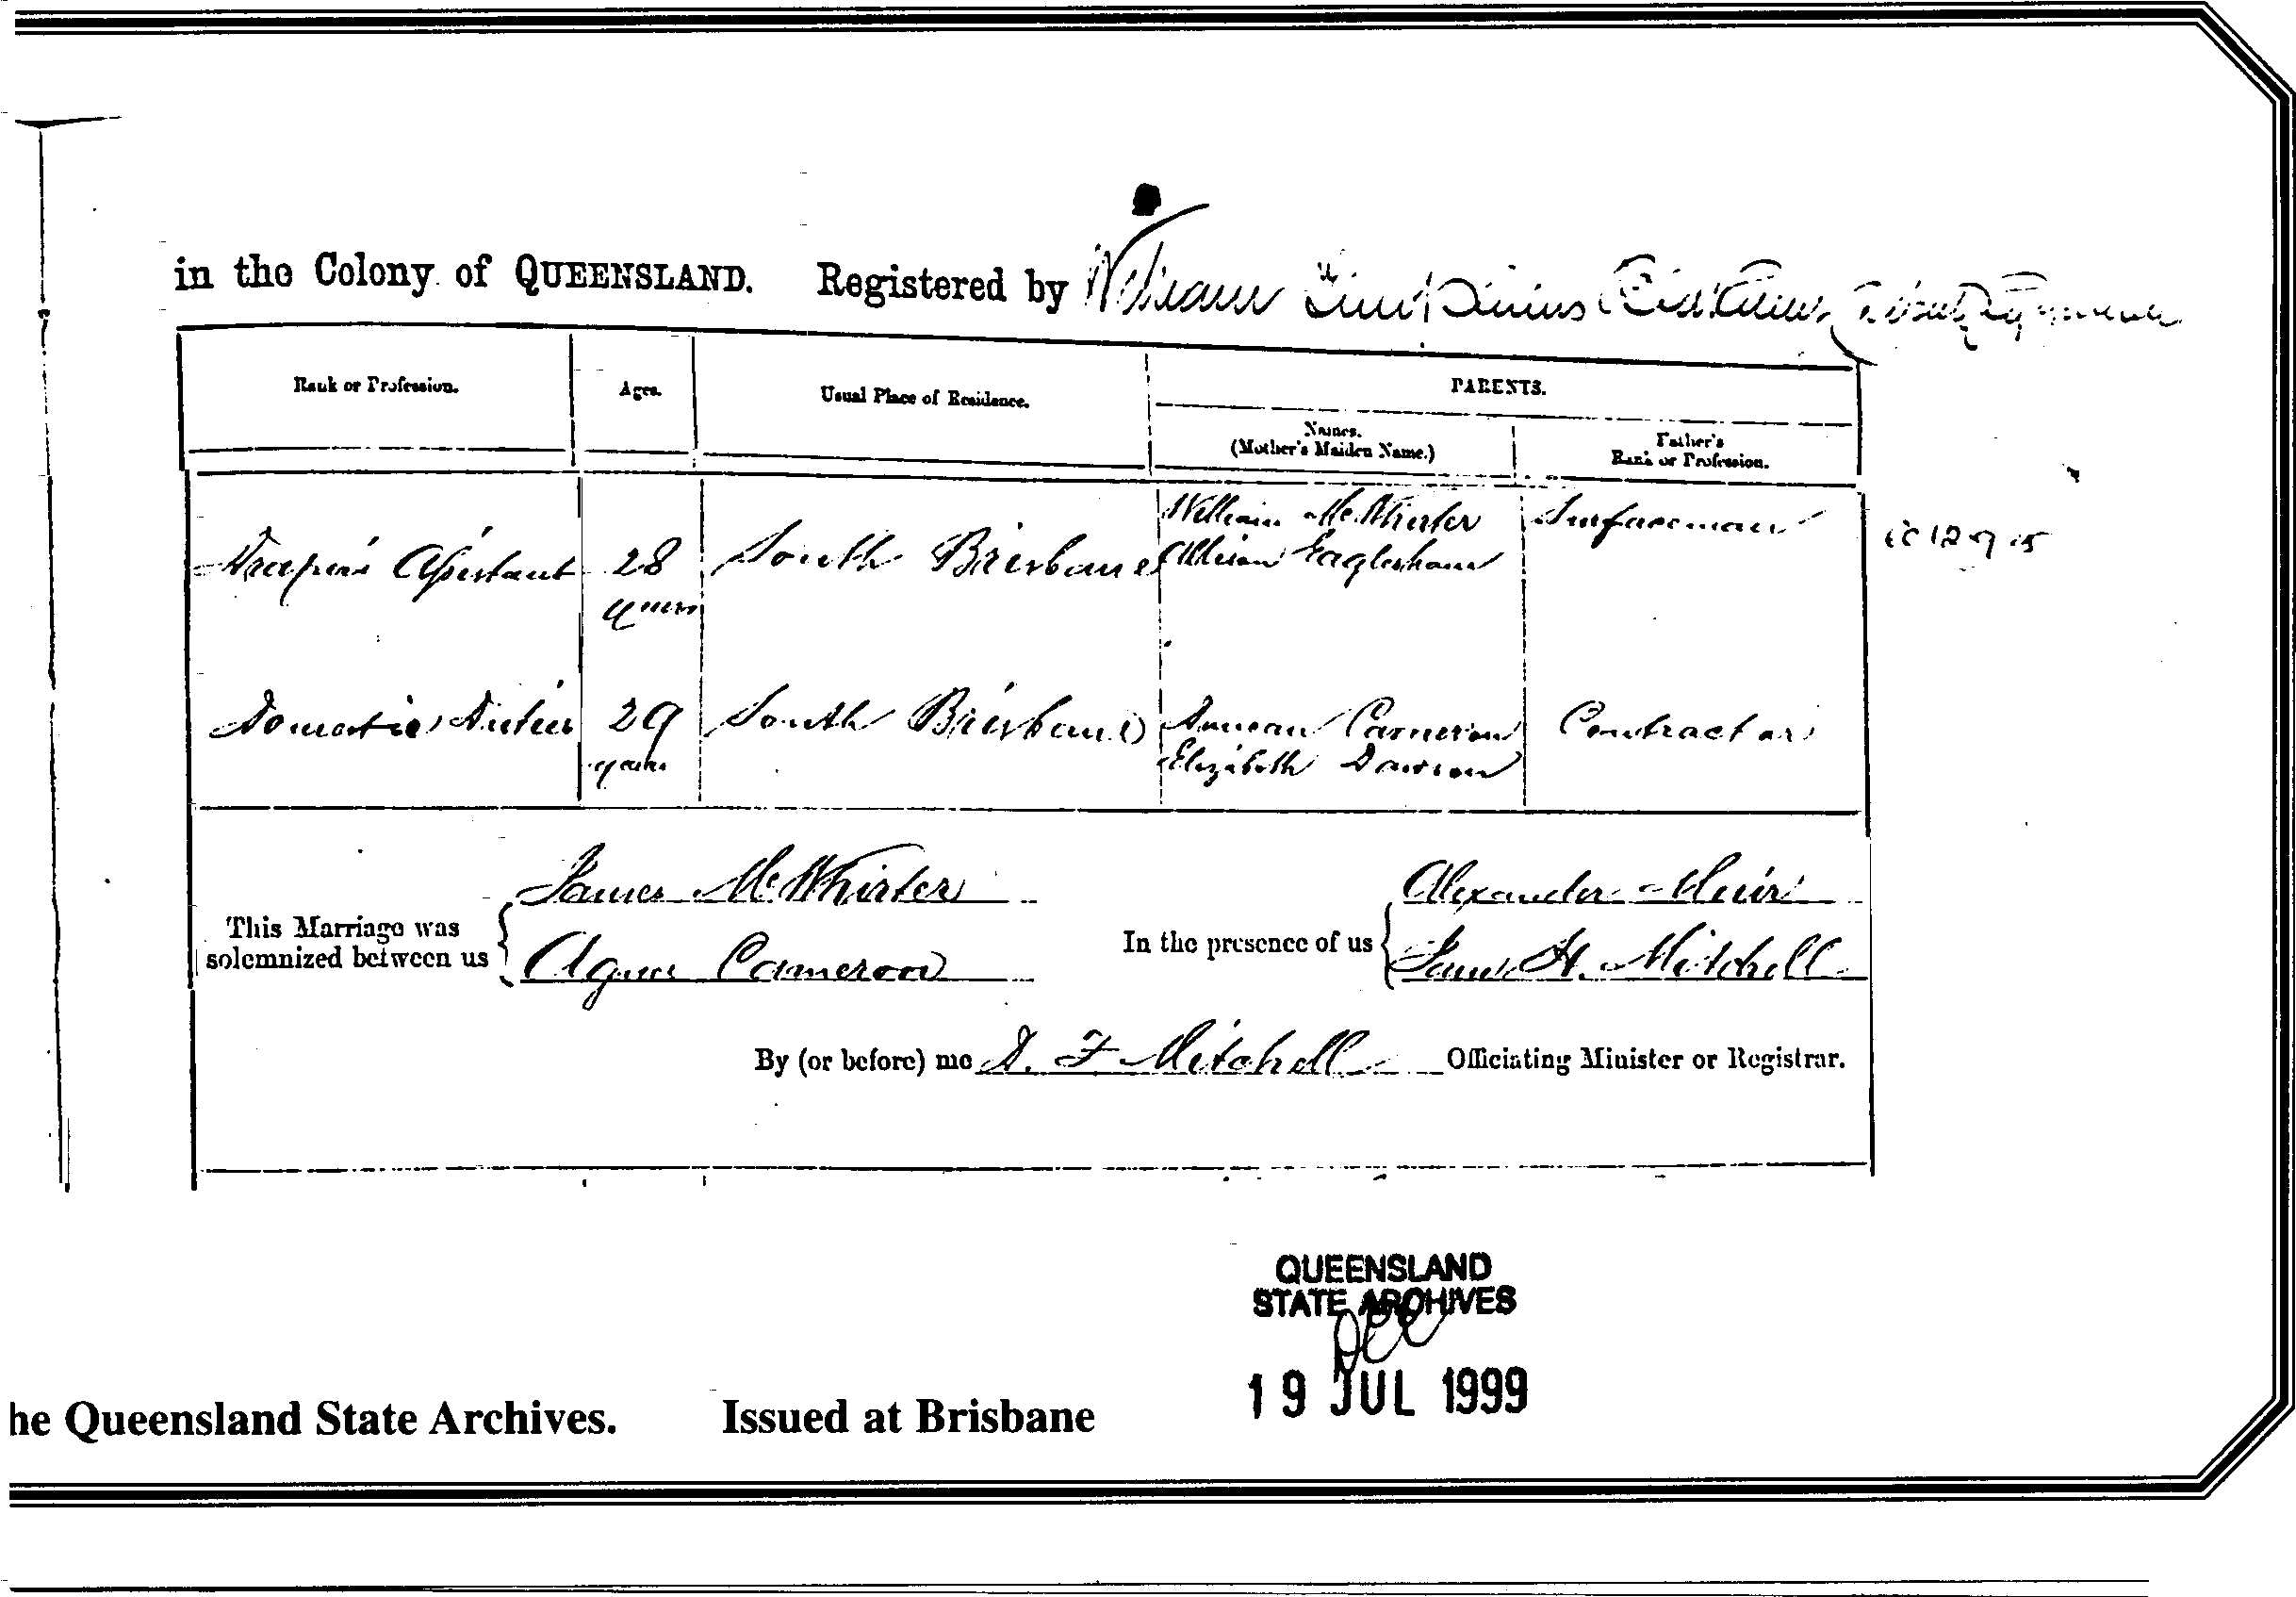 in the Colony of QUEENSLAND. Registered by William
Rank or Profession. Ages. Usual Place of Residence. PARENTS.
Names. (Mother's Maiden Name.) Father's Rank or Profession.
William McWhirter Surfaceman
Draper's Assistant 28 South Brisbane Allison Eaglesham
years
Domestic Duties 29 South Brisbane Duncan Cameron Contractor
years Elizabeth Dawson
James McWhirter Alexander Muir
This Marriage was
solemnized between us In the presence of us
Agnes Cameron James H. Mitchell
By (or before) me D. F Mitchell Officiating Minister or Registrar.
QUEENSLAND
STATE ARCHIVES
he Queensland State Archives. Issued at Brisbane 19 JUL 1999